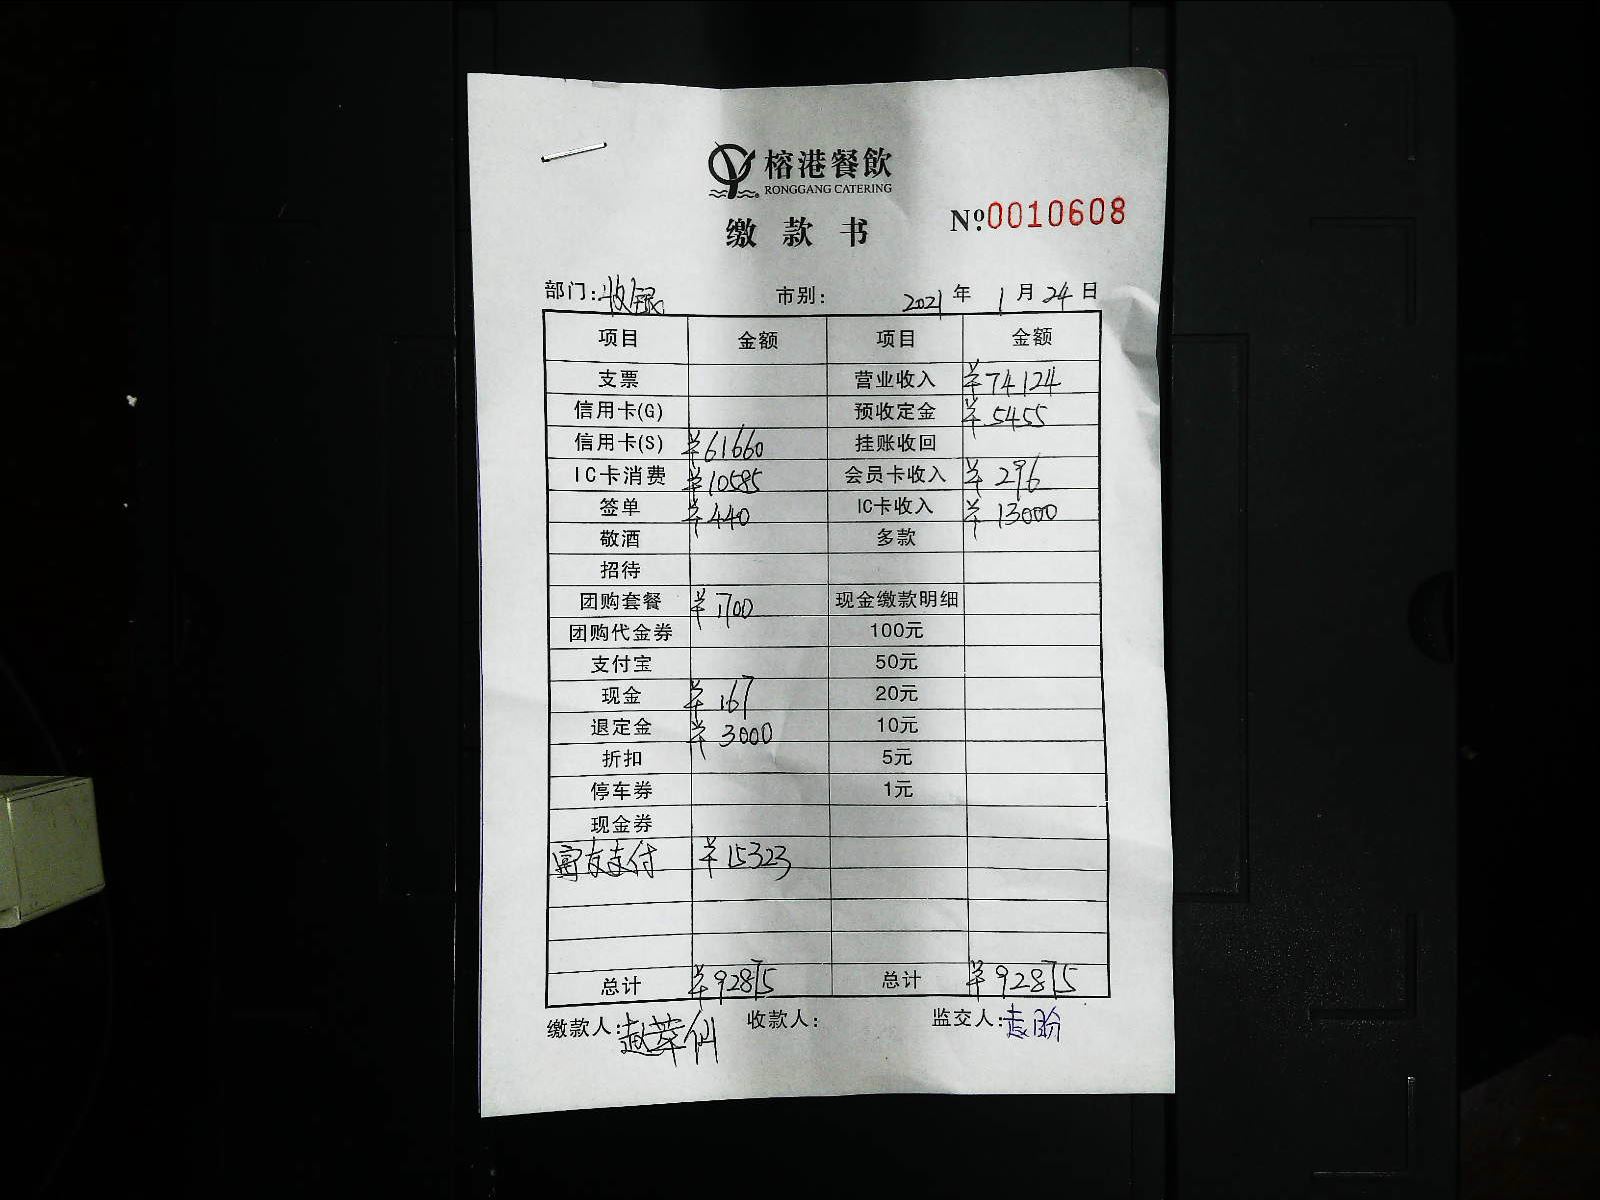 榕港餐飲
RONGGANG CATERING
缴款书
№0010608
部门:收银 市别: 2021年1月24日
项目 金额 项目 金额
支票 营业收入 ¥74124
信用卡(G) 预收定金 ¥5455
信用卡(S) ¥61660 挂账收回
IC卡消费 ¥10585 会员卡收入 ¥296
签单 ¥440 IC卡收入 ¥13000
敬酒 多款
招待
团购套餐 ¥1700 现金缴款明细
团购代金券 100元
支付宝 50元
现金 ¥167 20元
退定金 ¥3000 10元
折扣 5元
停车券 1元
现金券
富友支付 ¥15323
总计 ¥92875 总计 ¥92875
缴款人: 收款人: 监交人: